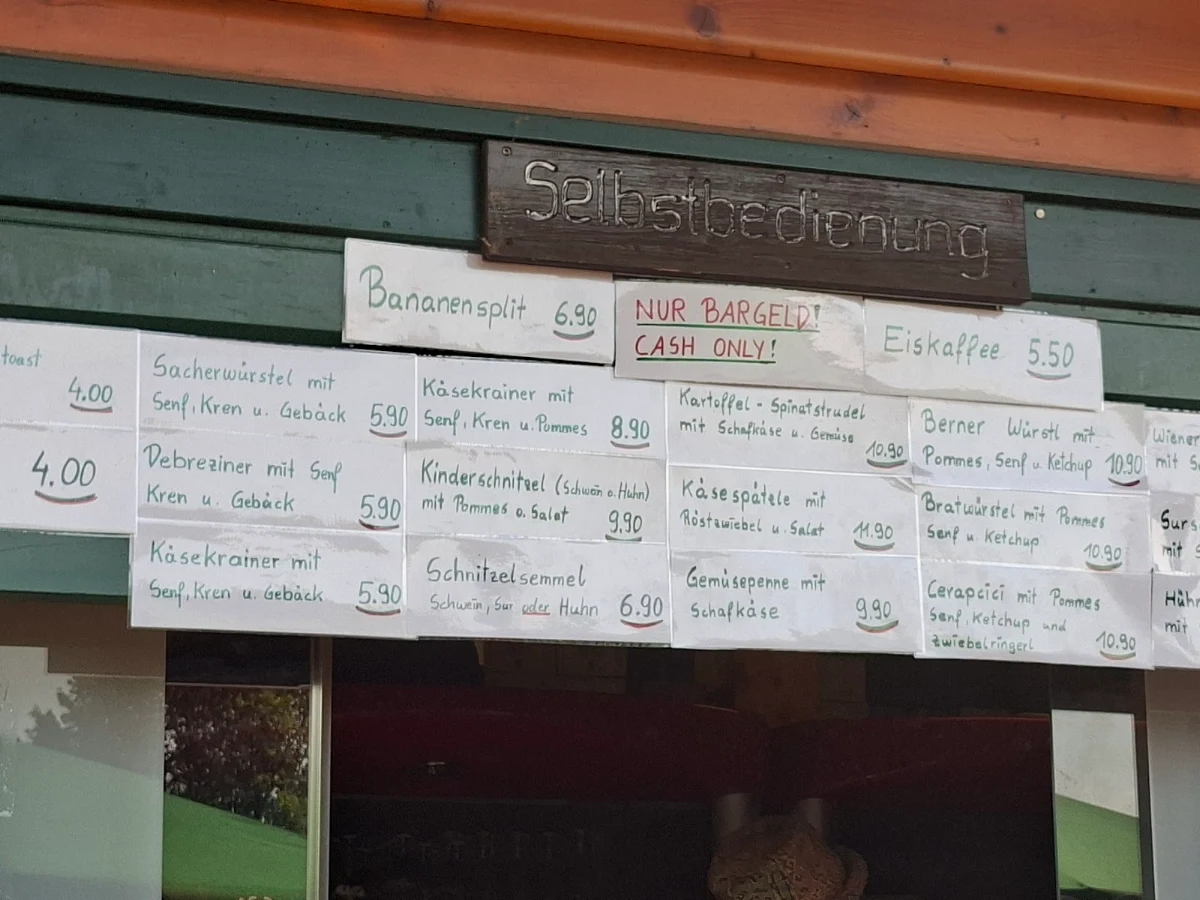 Selbstbedienung
Bananensplit 6.90
NUR BARGELD!
CASH ONLY!
Eiskaffee 5.50
toast
4.00
4.00
Sacherwürstel mit
Senf, Kren u. Gebäck 5.90
Debreziner mit Senf
Kren u. Gebäck 5.90
Käsekrainer mit
Senf, Kren u. Gebäck 5.90
Käsekrainer mit
Senf, Kren u. Pommes 8.90
Kinderschnitzel (Schwein o. Huhn)
mit Pommes o. Salat 9.90
Schnitzelsemmel
Schwein, Sur oder Huhn 6.90
Kartoffel - Spinatstrudel
mit Schafkäse u. Gemüse
10.90
Käsespätele mit
Röstzwiebel u. Salat 11.90
Gemüsepenne mit
Schafkäse 9.90
Berner Würstl mit
Pommes, Senf u. Ketchup 10.90
Bratwürstel mit Pommes
Senf u. Ketchup 10.90
Cerapcici mit Pommes
Senf, Ketchup und
Zwiebelringerl 10.90
Wiener
mit
Surs
mit
Hühn
mit